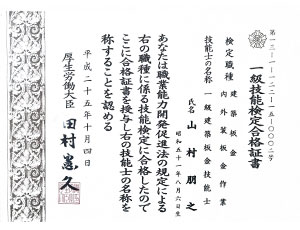 第一三-一-一二二-一五-〇〇〇二号
一級技能検定合格証書
検定職種 建築板金
内外装板金作業
技能士の名称 一級建築板金技能士
氏名 山村朋之
昭和五十一年八月六日生
あなたは職業能力開発促進法の規定による
右の職種に係る技能検定に合格したので
ここに合格証書を授与し右の技能士の名称を
称することを認める
平成二十五年十月四日
厚生労働大臣 田村憲久